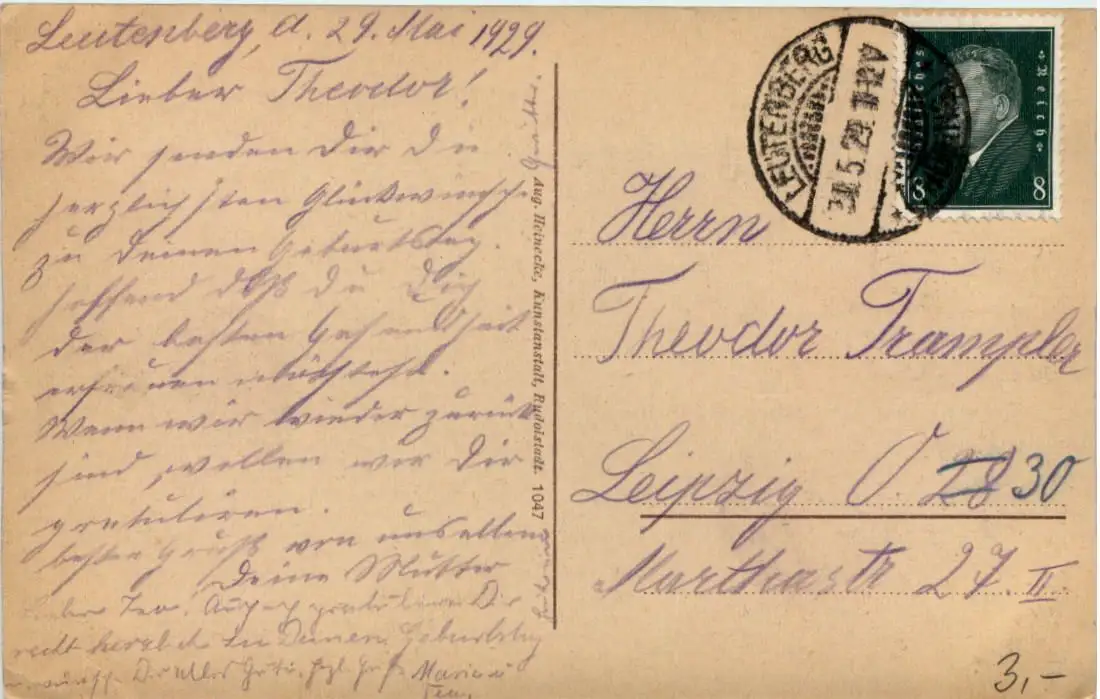 Leutenberg, d. 29. Mai 1929.
Lieber Theodor!
Wir senden Dir die
herzlichsten Glückwünsche
zu Deinen Geburtstag.
hoffend daß du Dich
der besten Gesundheit
erfreuen möchtest.
Wenn wir wieder zurück
sind, wollen wir Dir
gratulieren.
besten Gruß von uns allen
Deine Mutter
Lieber Teo! Auch ich gratuliere Dir
recht herzlich zu Deinen Geburtstag
u. wünsche Dir alles Gute. Hzl. Grüße Maria u
Aug. Heinecke, Kunstanstalt, Rudolstadt. 1047
LEUTENBERG
30.5.29. 11-12V
Deutsches Reich
8 8
Herrn
Theodor Trampler
Leipzig O. 28 30
Marthastr 27. II
3,-